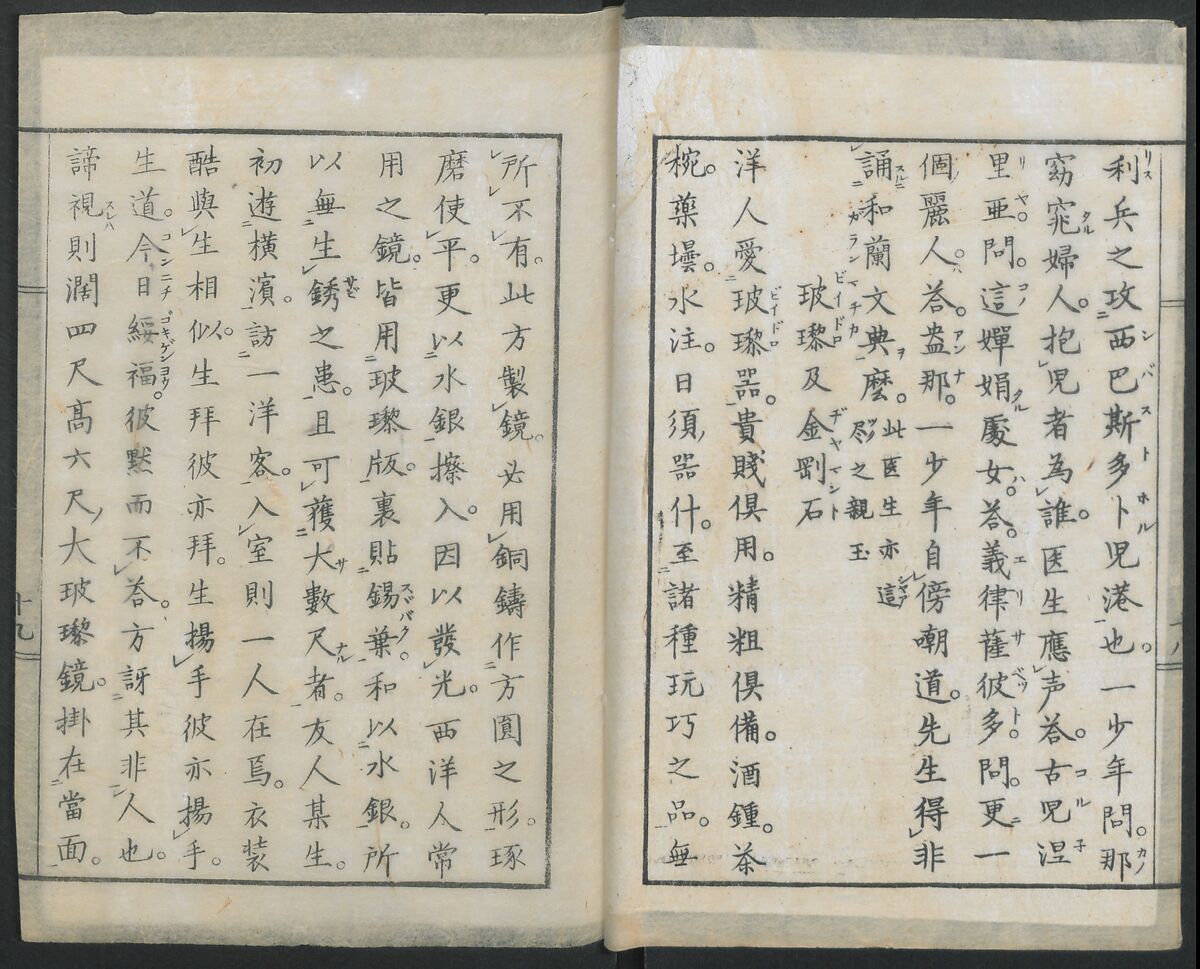 利兵之攻西巴斯多卜児港也。一少年問。那
窈窕婦人。抱児者為誰。医生應声荅。古児涅
里亜問。這嬋娟處女。荅。義律薩彼多。問。更一
個麗人。荅。盎那。一少年自傍嘲道。先生得非
誦和蘭文典麽。此医生亦這尽之親玉
玻瓈及金剛石
洋人愛玻瓈器。貴賤俱用。精粗俱備。酒鍾。茶
椀。薬壜。水注。日須器什。至諸種玩巧之品。無
所不有。此方製鏡。必用銅鋳作方圓之形。琢
磨使平。更以水銀擦入。因以發光。西洋人常
用之鏡。皆用玻瓈版。裏貼錫葉。和以水銀。所
以無生銹之患。且可獲大數尺者。友人某生。
初遊横濱。訪一洋客。入室則一人在焉。衣装
酷與生相似。生拜彼亦拜。生揚手彼亦揚手。
生道。今日綏福。彼黙而不荅。方訝其非人也。
諦視則濶四尺高六尺大玻瓈鏡。掛在當面。
十九